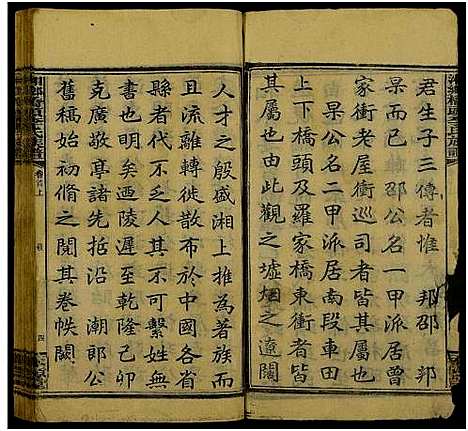 君生子三傳者惟大 邦邵 邦
杲而已 邵公名一甲派居曾
家衝老屋衝巡司者皆其屬也
杲公名二甲派居南段車田
下橋頭及羅家橋東衝者皆
其屬也由此觀之墟烟之遼闊
人才之殷盛湘上推為著族而
且流離轉徙散布於中國各省
縣者代不乏人其可繫姓無
書也明矣迺陵遲至乾隆己卯
克廣敬亭諸先括沿潮郎公
舊稿始初脩之閱其卷帙闕
卷首上
四